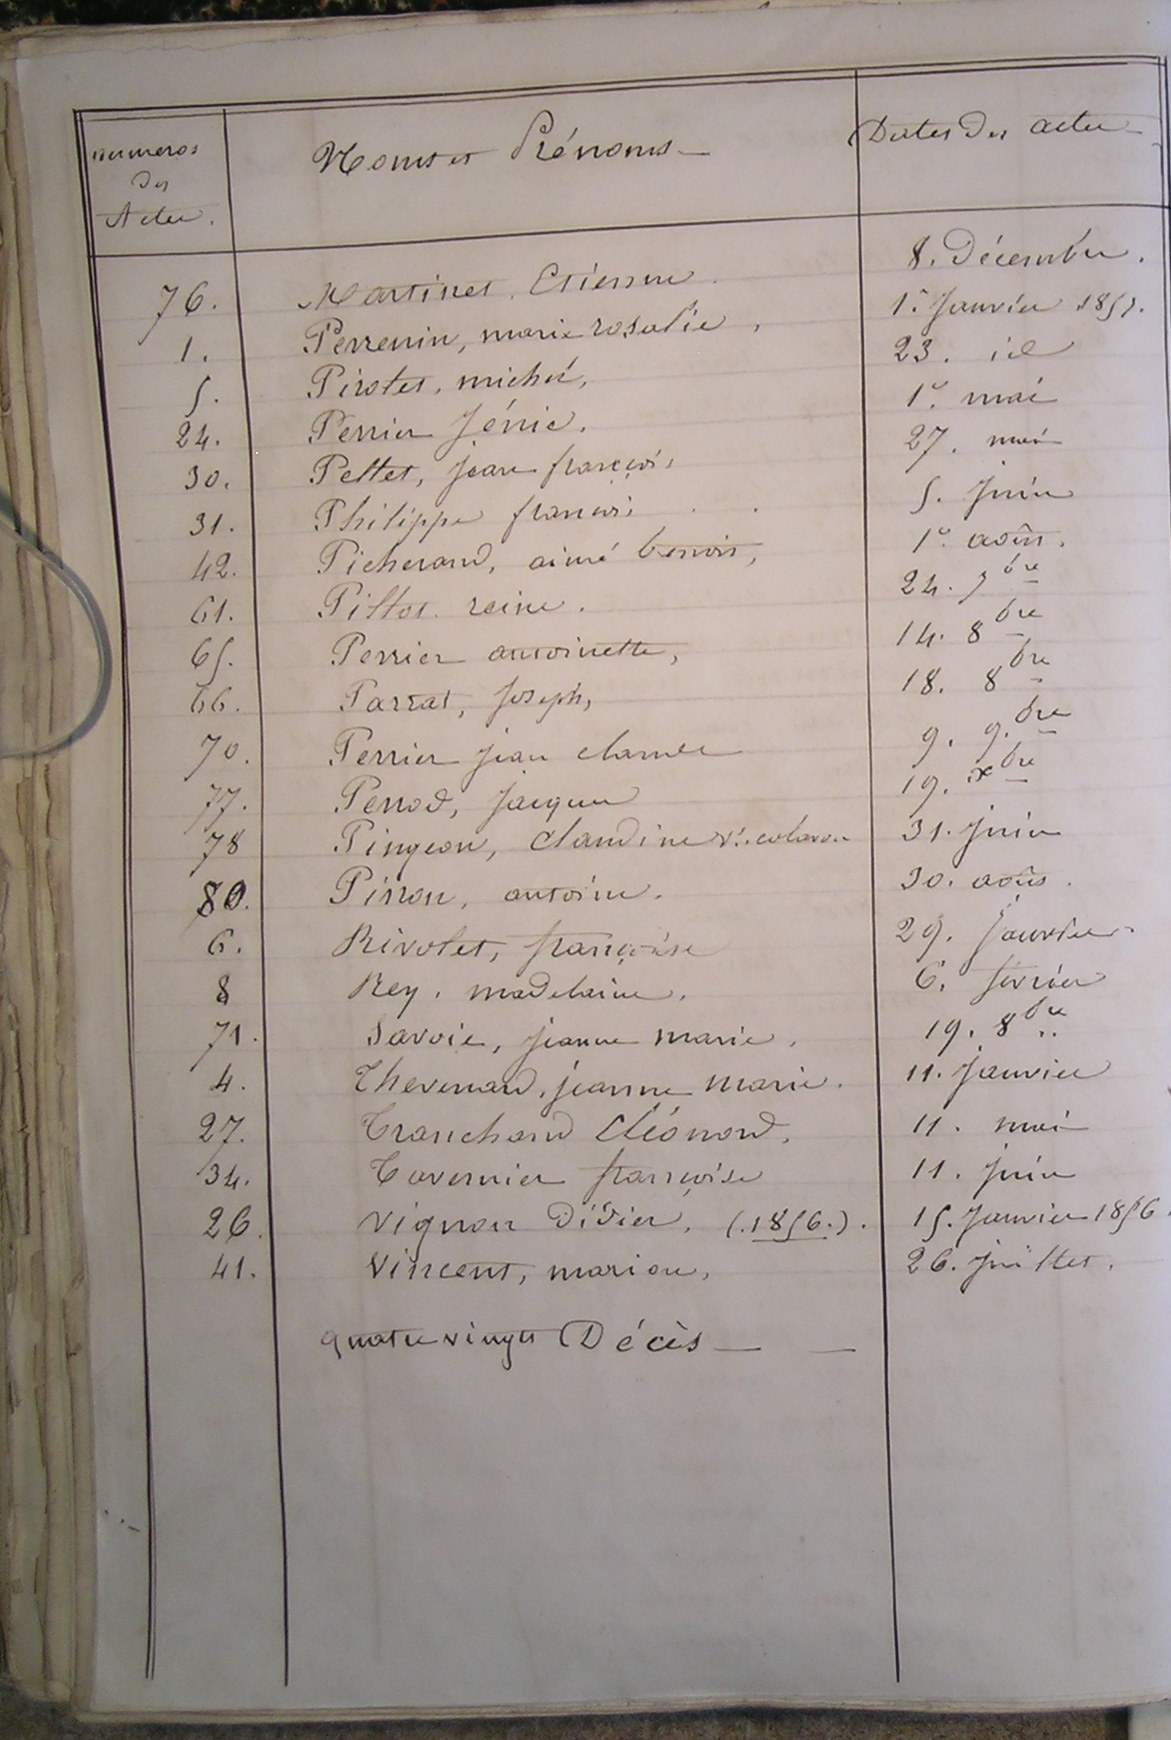 numeros des Actes. Noms et Prénoms Dates des actes
76. Martinet. Etienne. 8. Décembre.
1. Perrenin, marie rosalie, 1er Janvier 1857.
5. Pirotet, michel, 23. id
24. Perrier Jénie. 1er mai
30. Peltet, jean françois, 27. mai
31. Philippe françois 5. Juin
42. Picherand, aimé benoit, 1er août.
61. Pittot reine. 24. 7bre
65. Perrier antoinette, 14. 8bre
66. Parrat, Joseph, 18. 8bre
70. Perrier jean claude 9. 9.bre
77. Perrod, jacques 19. xbre
78 Pingeon, Claudine 31. Juin
80. Pirron, antoine. 30. août.
6. Rivolet, françoise 29. Janvier
8 Rey. madelaine. 6. février
71. Savoie, jeanne marie. 19. 8bre
4. Thevenard, jeanne marie. 11. Janvier
27. Tranchand Cléonord. 11. mai
34. Tavernier françoise 11. juin
26. Vignon Didier. (.1856.). 15. Janvier 1856.
41. Vincent, marion, 26. Juillet.
quatre vingts Décès